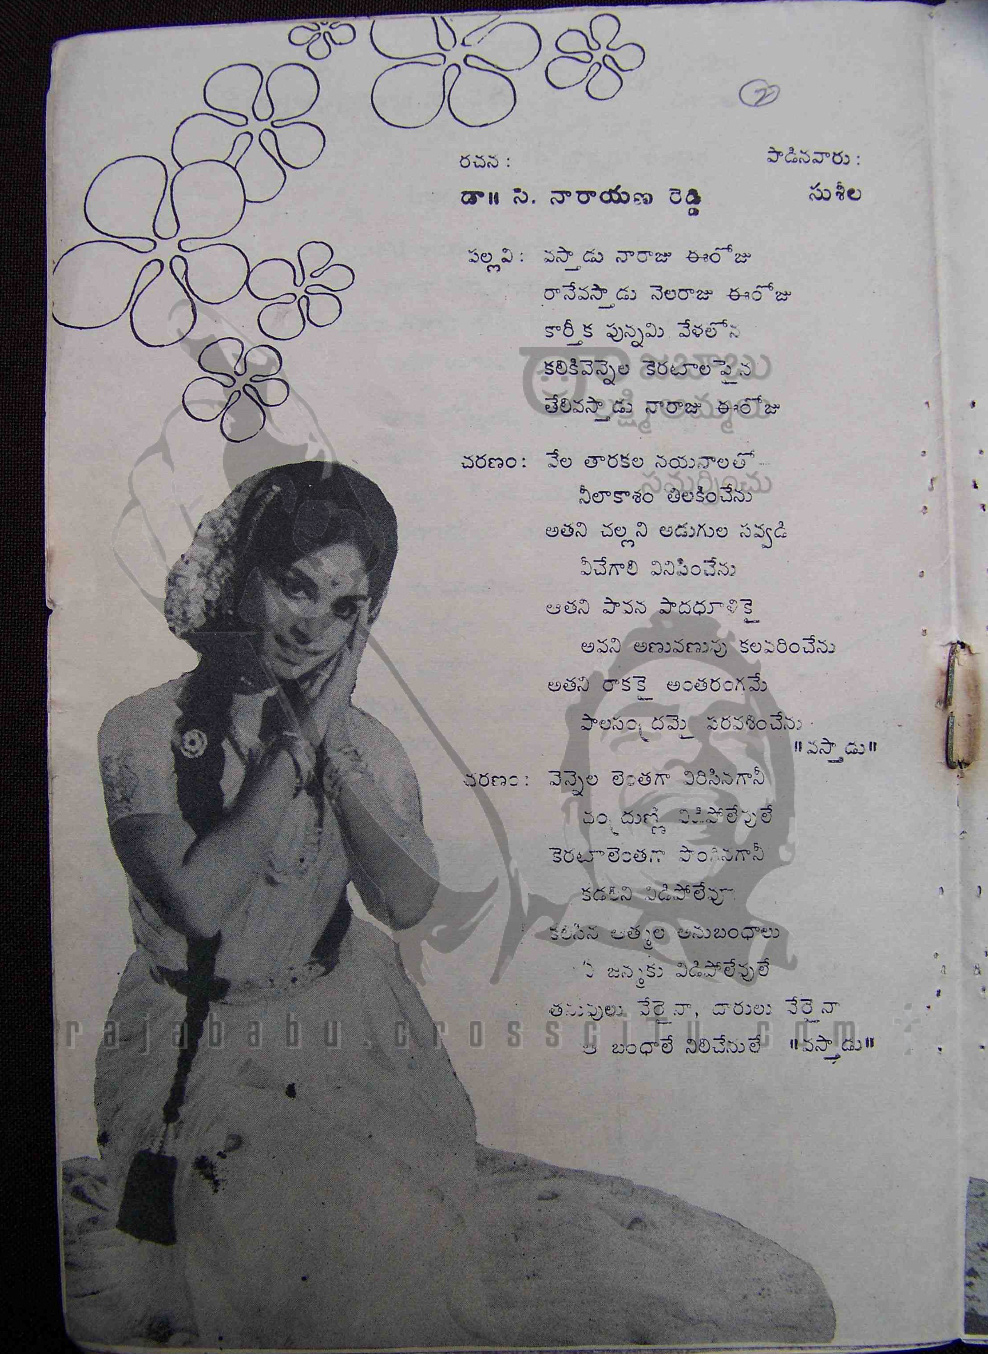 2
రచన :
పాడినవారు :
డా॥ సి. నారాయణ రెడ్డి
సుశీల
పల్లవి : వస్తాడు నారాజు ఈరోజు
రానేవస్తాడు నెలరాజు ఈరోజు
కార్తీక పున్నమి వేళలోన
కలికివెన్నెల కెరటాలపైన
తేలివస్తాడు నారాజు ఈరోజు
చరణం : వేల తారకల నయనాలతో
నీలాకాశం తిలకించేను
అతని చల్లని అడుగుల సవ్వడి
వీచేగాలి వినిపించేను
ఆతని పావన పాదధూళికై
అవని అణువణువు కలవరించేను
అతని రాకకై అంతరంగమే
పాలసంద్రమై పరవశించేను
"వస్తాడు"
చరణం : వెన్నెల లెంతగా విరిసినగానీ
చంద్రుణ్ణి విడిపోలేవులే
కెరటాలెంతగా పొంగినగానీ
కడలిని విడిపోలేవూ
కలిసిన ఆత్మల అనుబంధాలు
ఏ జన్మకు విడిపోలేవులే
తనువులు వేరైనా, దారులు వేరైనా
ఆ బంధాలే నిలిచేనులే "వస్తాడు"
రాజబాబు
లక్ష్మి అమ్మలు
సమర్పించు
rajababu.crosscity.com